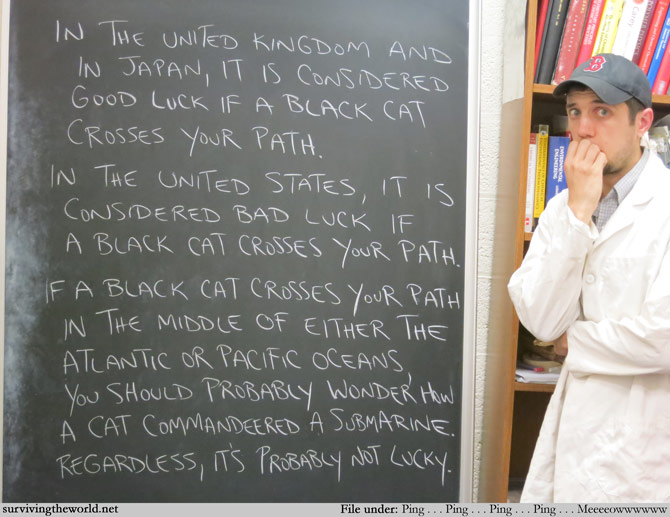 IN THE UNITED KINGDOM AND
IN JAPAN, IT IS CONSIDERED
GOOD LUCK IF A BLACK CAT
CROSSES YOUR PATH.
IN THE UNITED STATES, IT IS
CONSIDERED BAD LUCK IF
A BLACK CAT CROSSES YOUR PATH.
IF A BLACK CAT CROSSES YOUR PATH
IN THE MIDDLE OF EITHER THE
ATLANTIC OR PACIFIC OCEANS,
YOU SHOULD PROBABLY WONDER HOW
A CAT COMMANDEERED A SUBMARINE.
REGARDLESS, IT'S PROBABLY NOT LUCKY.
B
Carey
ENVIRONMENTAL ENGINEERING
survivingtheworld.net
File under: Ping . . . Ping . . . Ping . . . Ping . . . Meeeeowwwwww